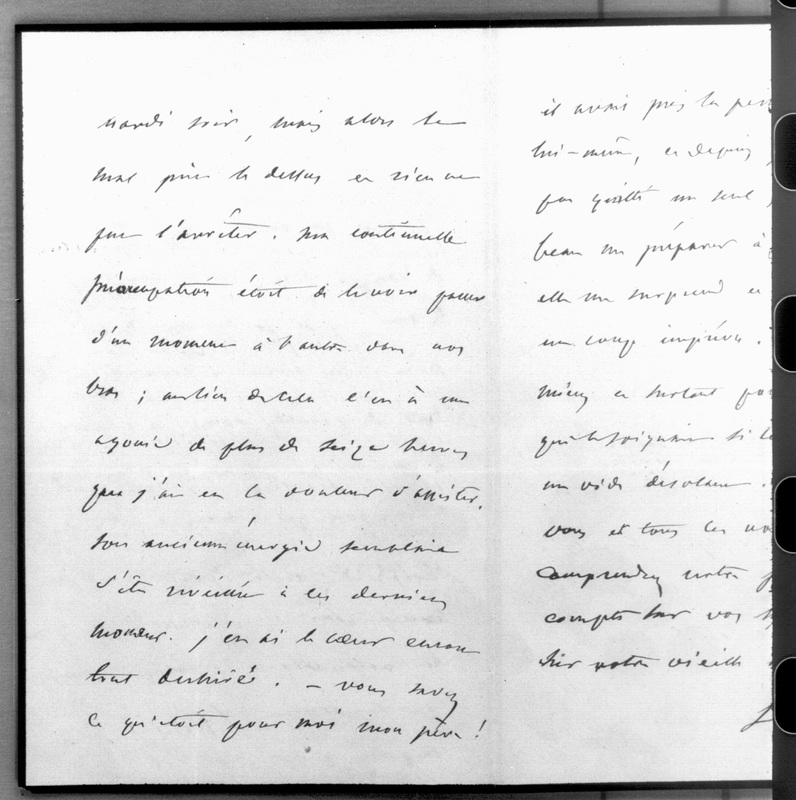 mardi soir, mais alors le
mal prit le dessus et rien ne
put l'arrêter. ma continuelle
préoccupation étoit de le voir passer
d'un moment à l'autre dans nos
bras ; au lieu de cela c'est à une
agonie de plus de seize heures
que j'ai eu la douleur d'assister.
son ancienne énergie semblait
s'être réveillée à ces derniers
moments. j'en ai le cœur encore
tout déchiré. – vous savez
ce qu'étoit pour moi mon père !
il avait pris la
lui-même, et depuis
pas quitté un seul
beau me préparer à
elle me surprend et
un coup imprévu.
mieux et surtout
qui le soignions si
un vide désolant.
vous et tous les
comprendrez notre
compte sur vos
sur votre vieille